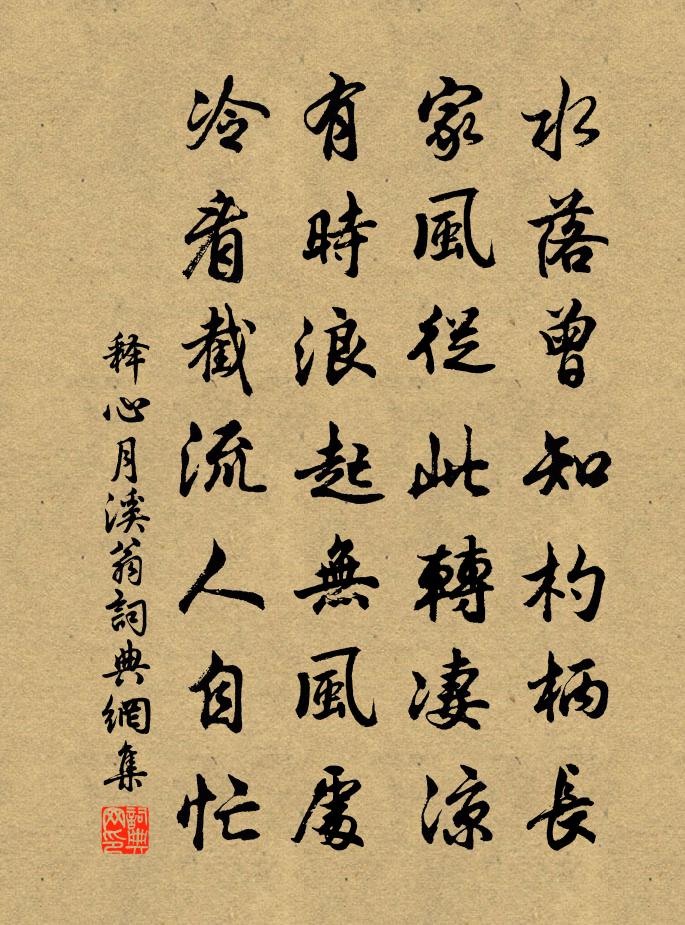 水落曾知杓柄長
家風從此轉凄涼
有時浪起無風處
冷看截流人自忙
释心月溪翁詞典網集
詞典网印